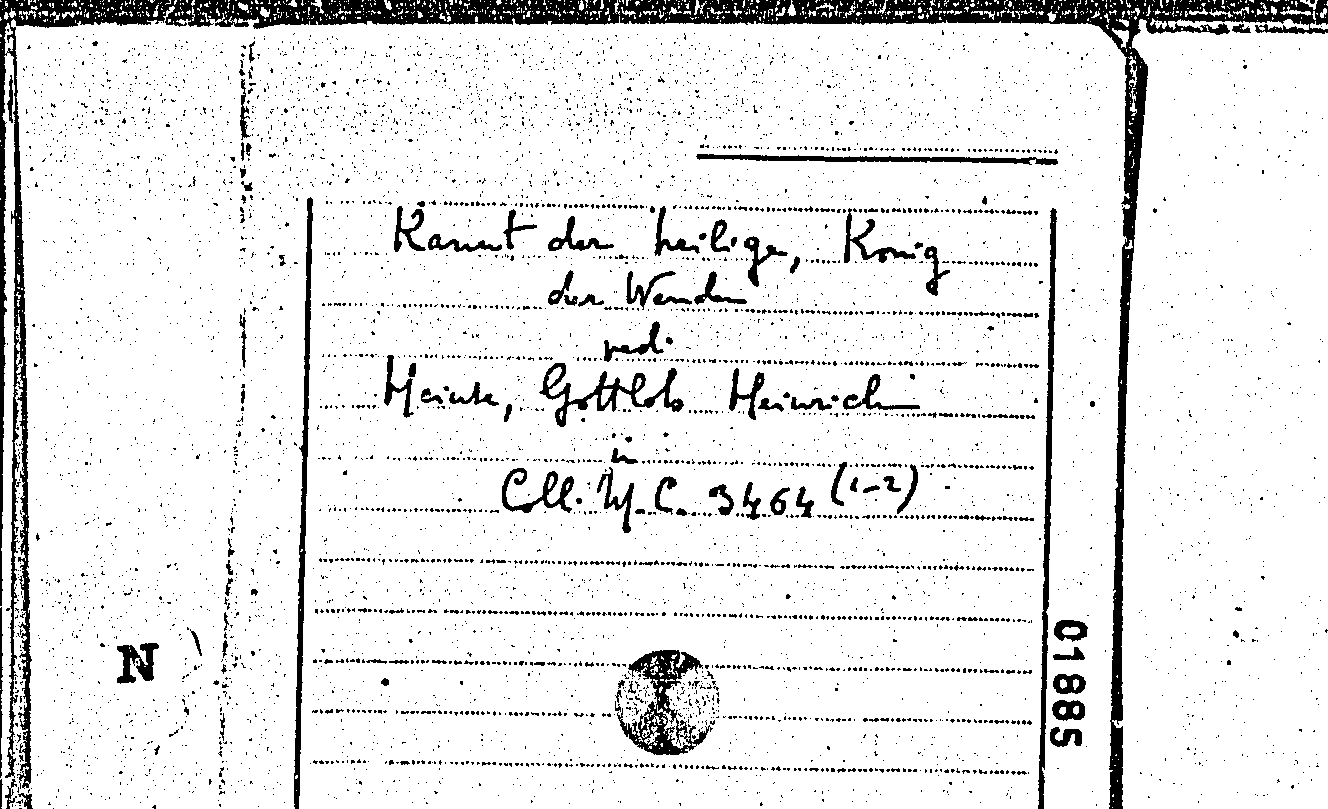 Kanut der heilige, König
der Wenden
vedi
Heinse, Gottlob Heinrich
in
Coll. M. C. 3464 (1-2)
N
01885